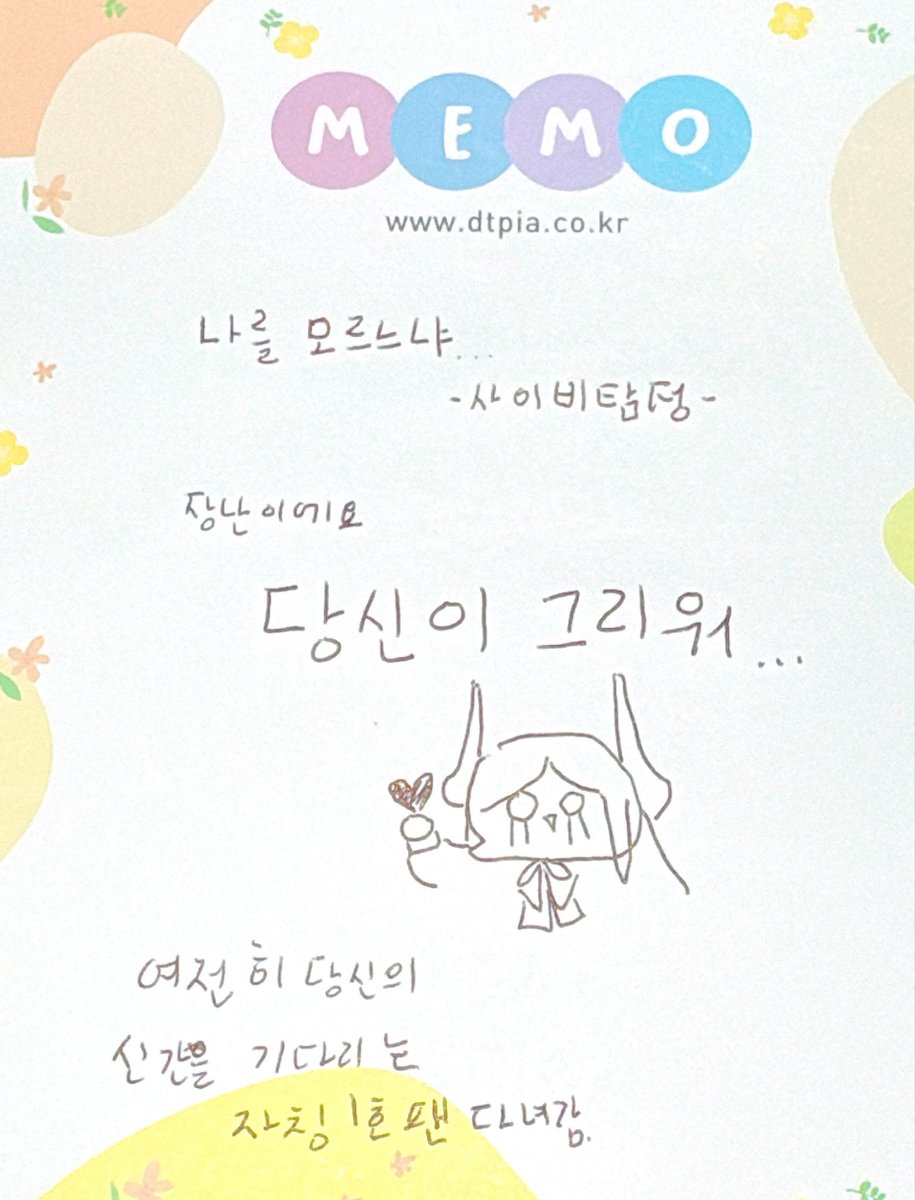 MEMO
www.dtpia.co.kr
나를 모르느냐...
-사이비탐정-
장난이에요
당신이 그리워...
여전히 당신의
신간을 기다리는
자칭 1호팬 다녀감.